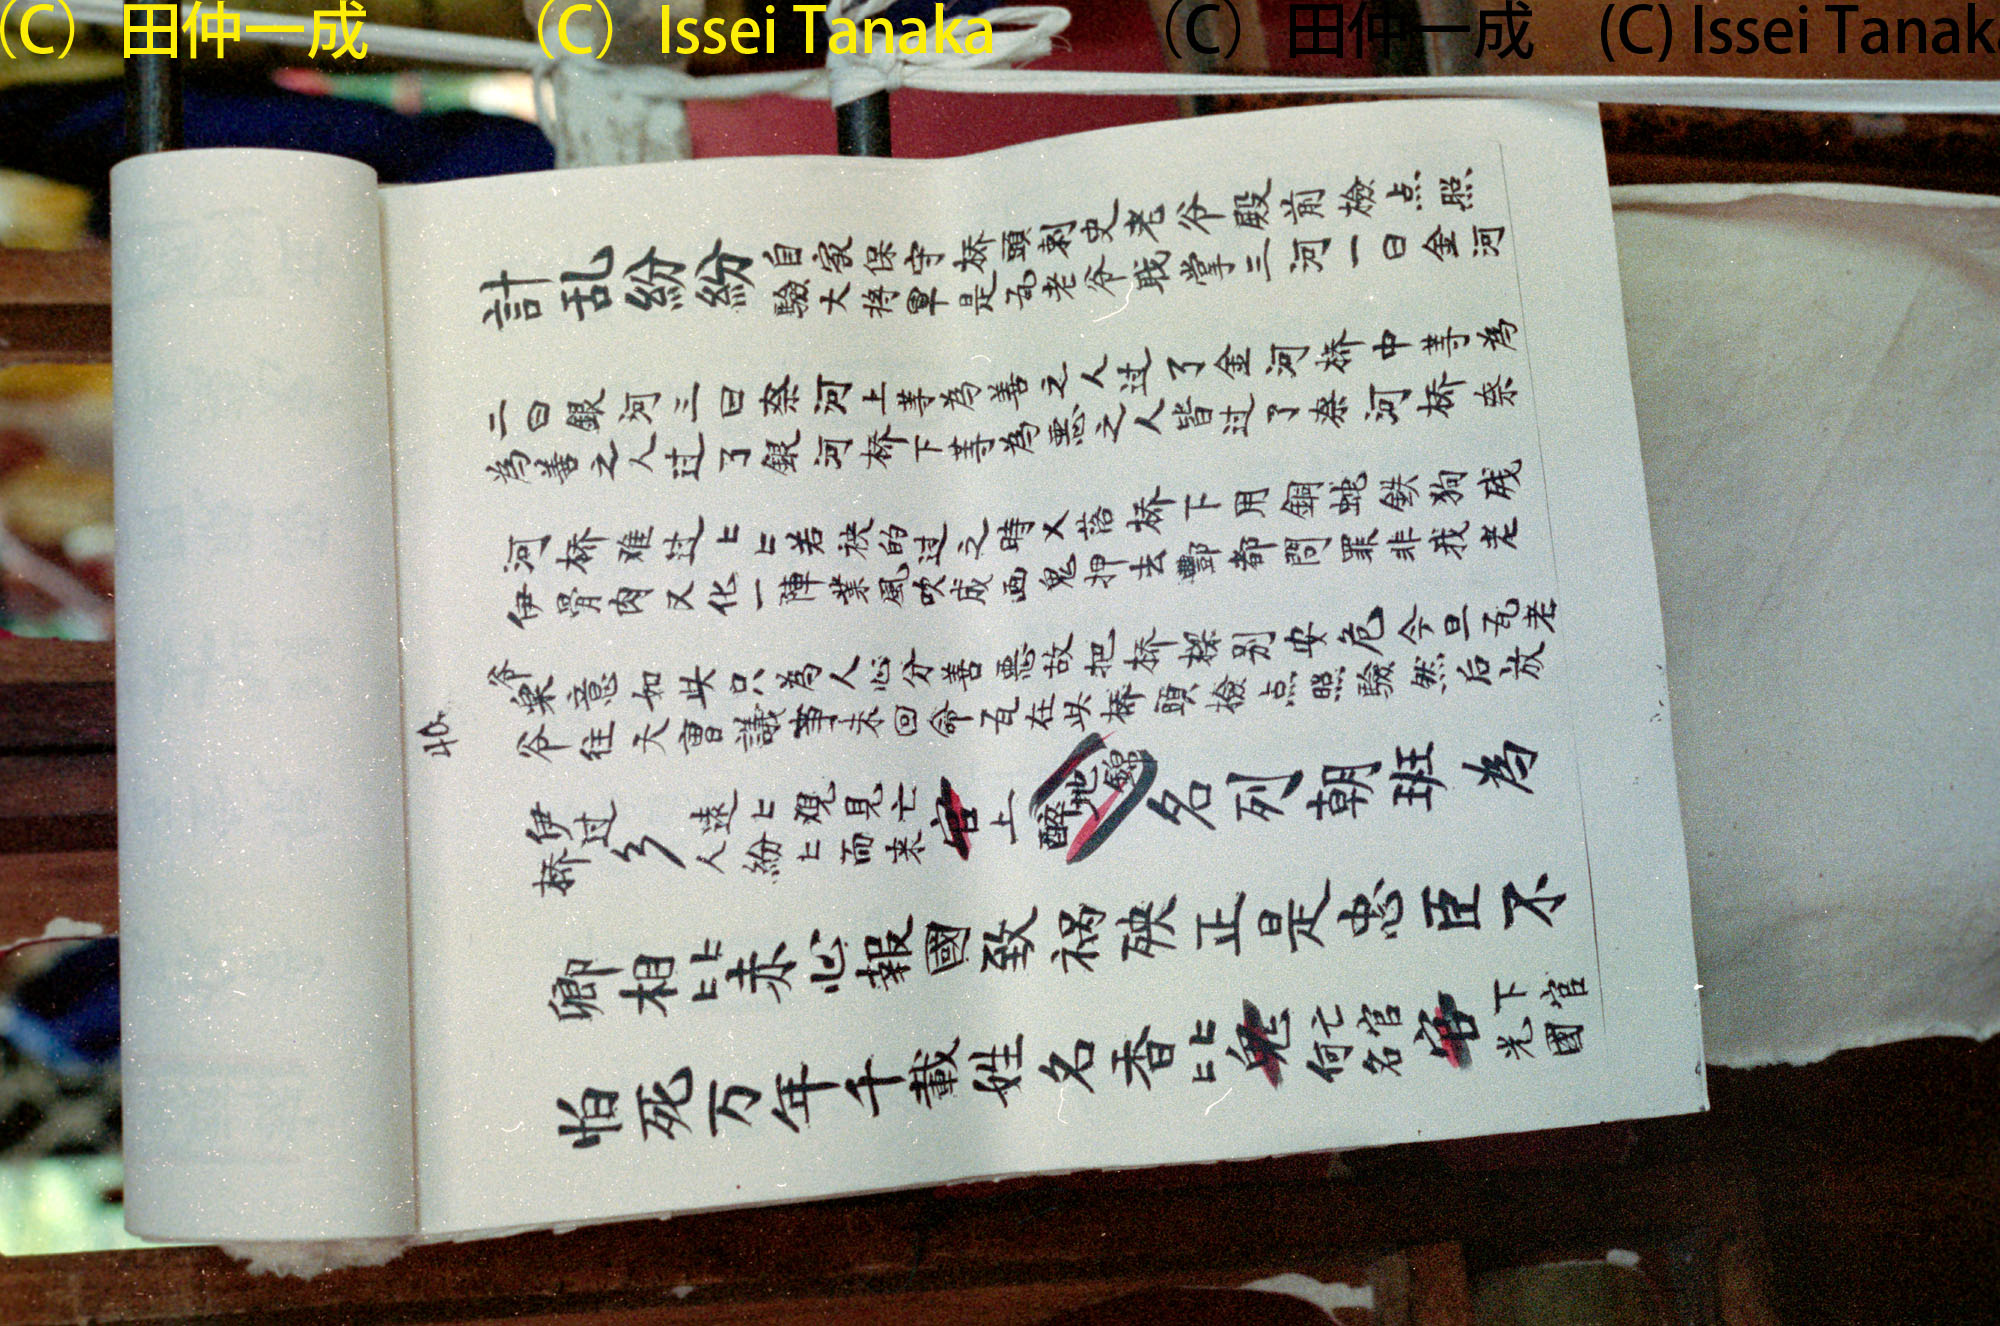 (C) 田仲一成 (C) Issei Tanaka (C) 田仲一成 (C) Issei Tanaka
計乱紛紛
自家保守桥頭刺史老爷殿前檢点照
驗大將軍是瓦老爷戢掌三河一曰金河
二曰銀河三曰奈河上等為善之人过了金河桥中等為
為善之人过了銀河桥下等為悪之人皆过了奈河桥奈
河桥难过〻若袂的过之時又落桥下用銅蛇鉄狗残
伊骨肉又化一陣業風吹成画鬼押去酆都問罪非我老
爷意如此只為人心分善悪故把桥樑别安危今旦瓦老
爷往天曹議事未回命瓦在此桥頭檢点照驗然后放
40
伊过
桥
遠〻观見亡
人紛〻而来
官
上
醉地錦
名列朝班為
卿相〻赤心報國致禍殃正是忠臣不
怕死万年千載姓名香〻
鬼
亡官
何名
官
下官
光國